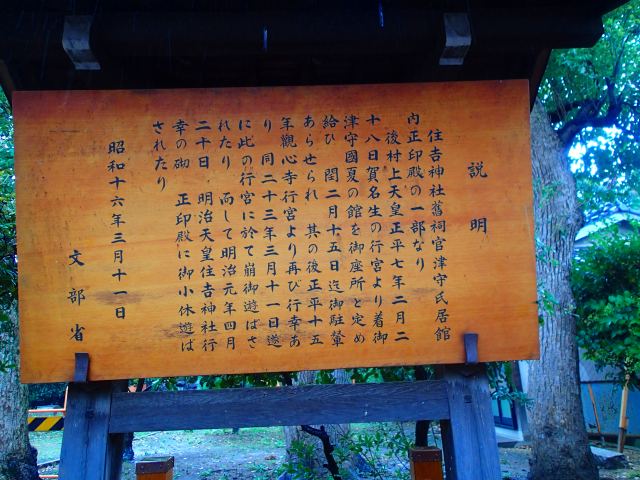 説明
住吉神社舊祠官津守氏居館
内正印殿の一部なり
後村上天皇正平七年二月二
十八日賀名生の行宮より着御
津守國夏の館を御座所と定め
給ひ 閏二月十五日迄御駐輦
あらせられ 其の後正平十五
年觀心寺行宮より再び行幸あ
り 同二十三年三月十一日遂
に此の行宮に於て崩御遊ばさ
れたり 而して明治元年四月
二十日 明治天皇住吉神社行
幸の砌 正印殿に御小休遊ば
されたり
昭和十六年三月十一日
文部省